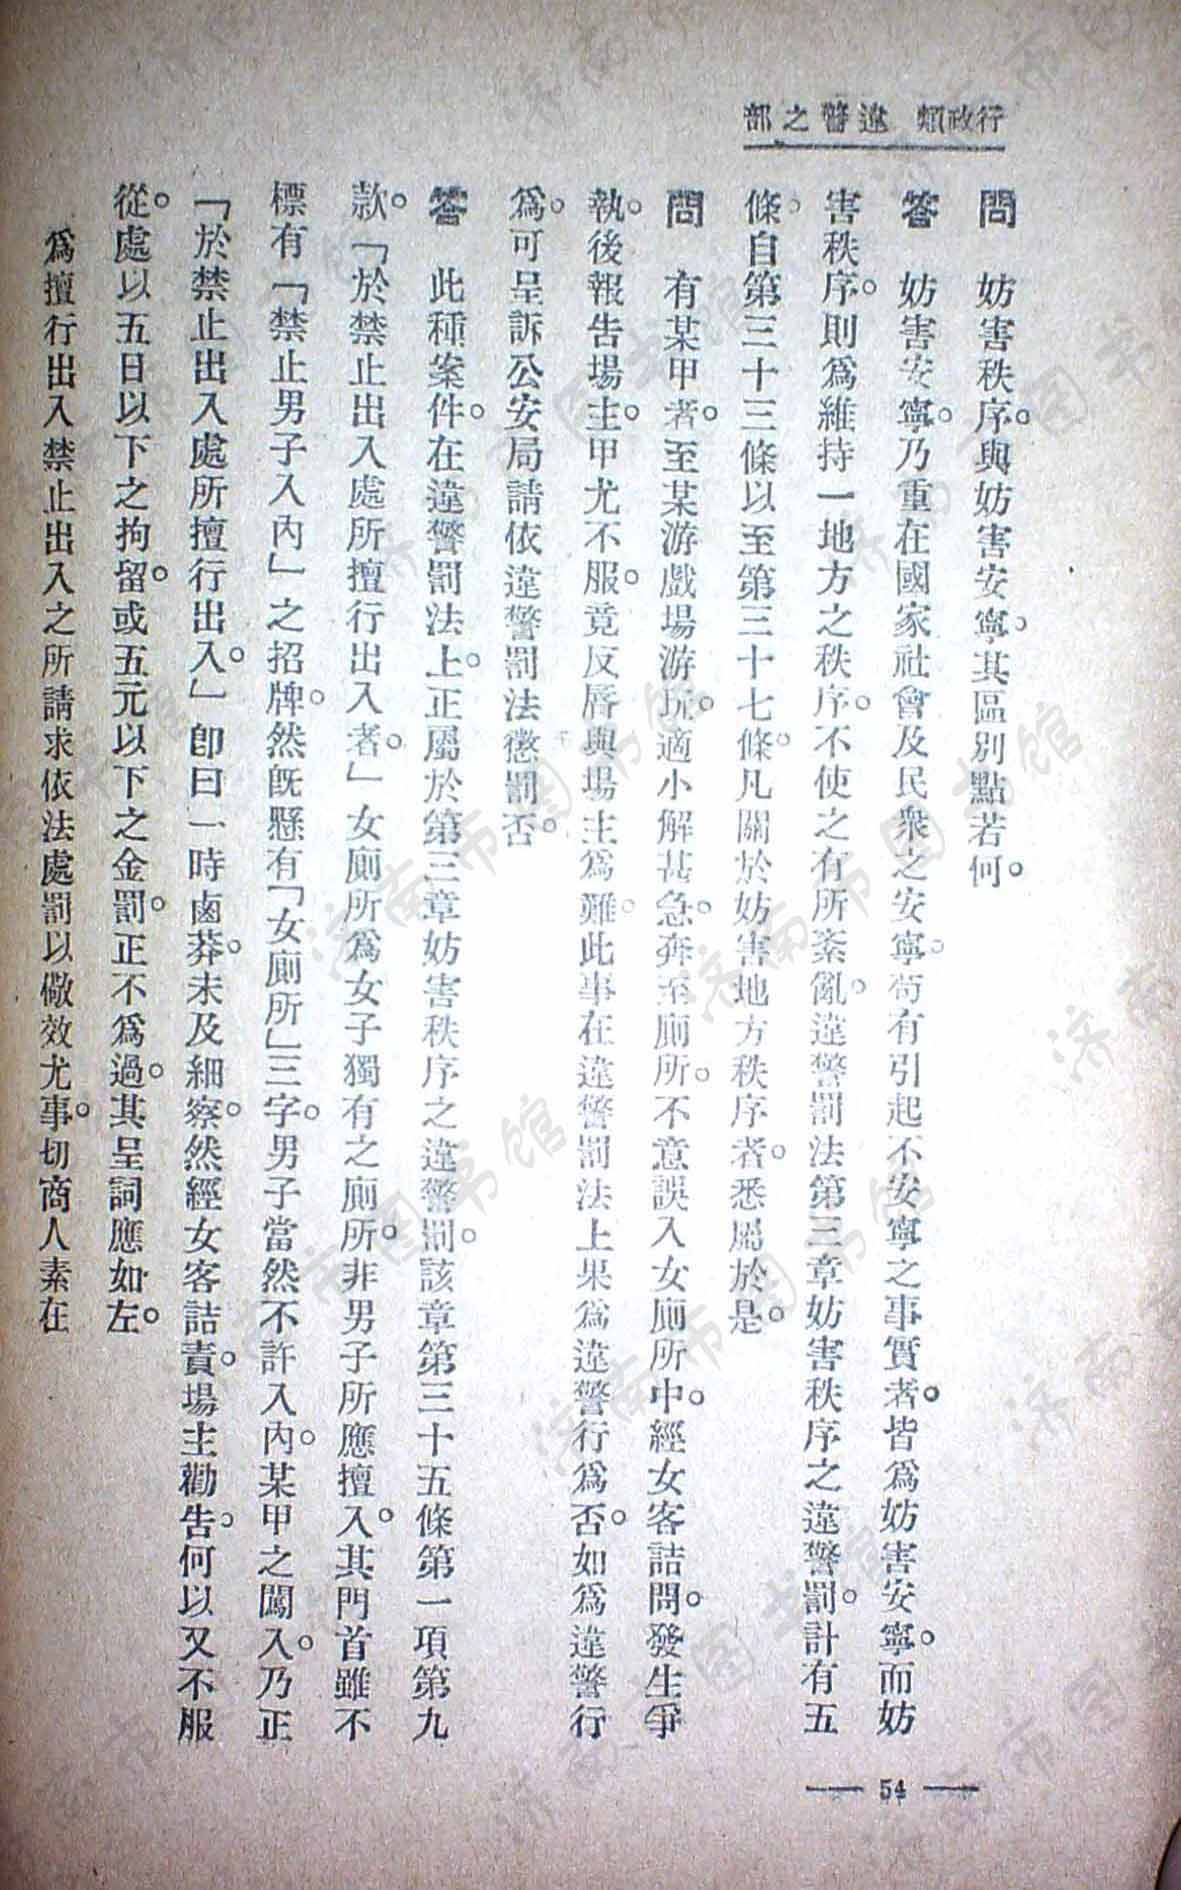 行政類　違警之部
問　妨害秩序。與妨害安寧。其區別點若何。
答　妨害安寧。乃重在國家社會及民衆之安寧。苟有引起不安寧之事實者。皆爲妨害安寧。而妨
害秩序。則爲維持一地方之秩序。不使之有所紊亂。違警罰法第三章妨害秩序之違警罰。計有五
條。自第三十三條以至第三十七條。凡關於妨害地方秩序者。悉屬於是。
問　有某甲者。至某游戲場游玩。適小解甚急。奔至廁所。不意誤入女廁所中。經女客詰問。發生爭
執。後報告場主。甲尤不服。竟反唇與場主爲難。此事在違警罰法上果爲違警行爲否。如爲違警行
爲。可呈訴公安局請依違警罰法懲罰否。
答　此種案件。在違警罰法上。正屬於第三章妨害秩序之違警罰。該章第三十五條第一項第九
款。「於禁止出入處所擅行出入者。」女廁所爲女子獨有之廁所。非男子所應擅入。其門首雖不
標有「禁止男子入內」之招牌。然旣懸有「女廁所」三字。男子當然不許入內。某甲之闖入。乃正
「於禁止出入處所擅行出入。」卽曰一時鹵莽。未及細察。然經女客詰責。場主勸告。何以又不服
從。處以五日以下之拘留。或五元以下之金罰。正不爲過。其呈詞應如左。
爲擅行出入禁止出入之所請求依法處罰以儆效尤事。切商人素在
54
济南市图书馆